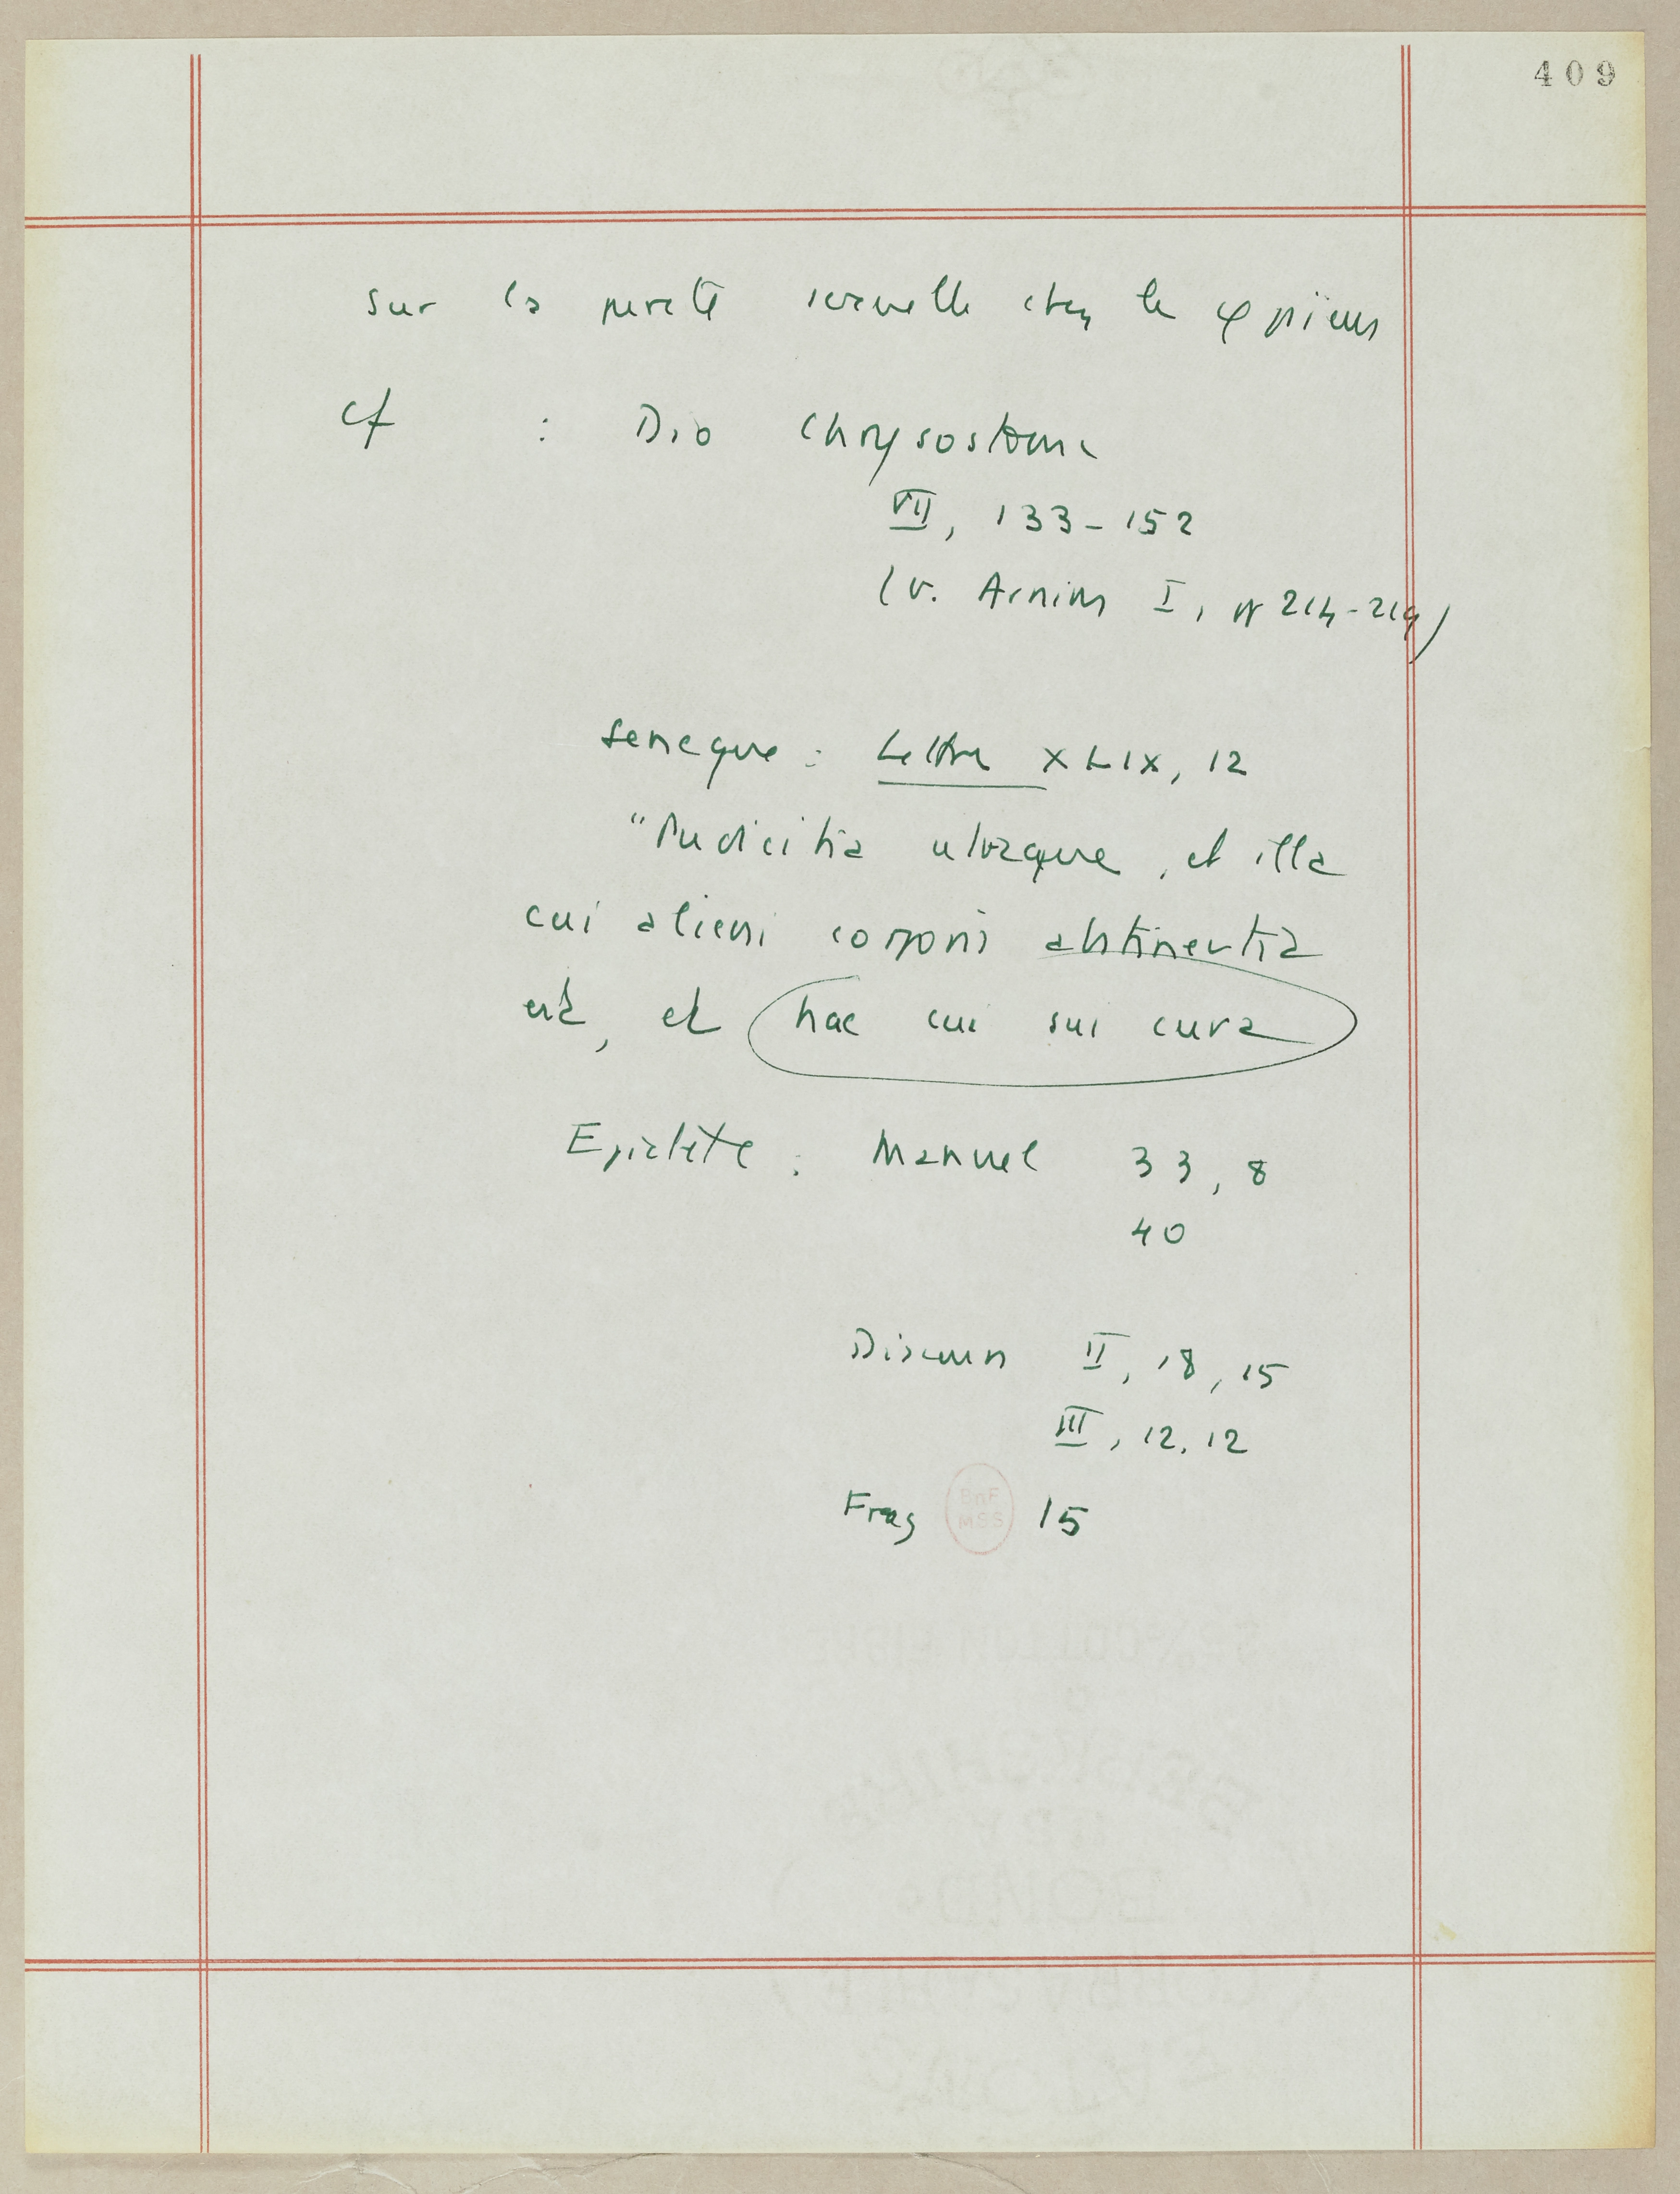 409
sur la pureté sexuelle chez le φ
cf : Dio Chrysostome
VII, 133-152
(v. Arnim I, n° 214-219)
Seneque : Lettre XLIX, 12
"Pudicitia utraque, et illa
cui alieni corporis abstinentia
est, et hac cui sui cura
Epictète : Manuel 33, 8
40
Discours II, 18, 15
III, 12, 12
Frag 15
BnF
MSS